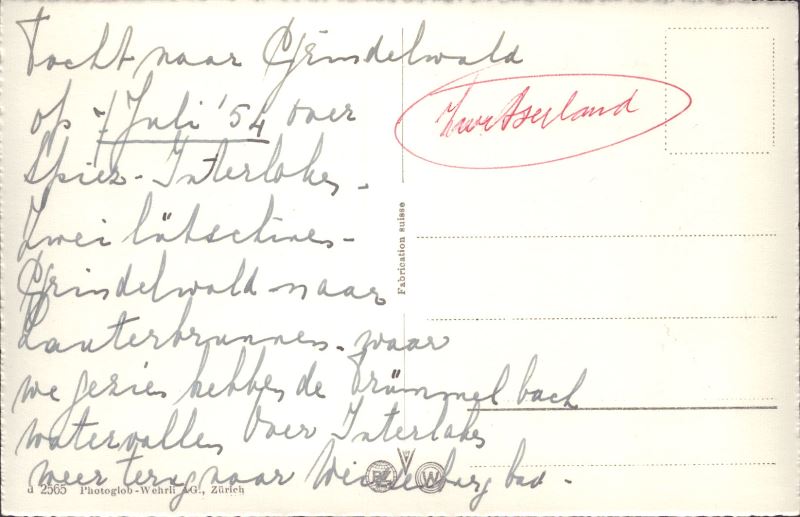 Tocht naar Grindelwald
op 7 Juli '54 over
Spiez - Interlaken -
Zweilütschinen -
Grindelwald - naar
Lauterbrunnen - waar
we gezien hebben de Trümmelbach
watervallen Over Interlaken
weer terug naar Weissenburg bad -
Zwitserland
Fabrication suisse
d 2565 Photoglob-Wehrli AG., Zürich